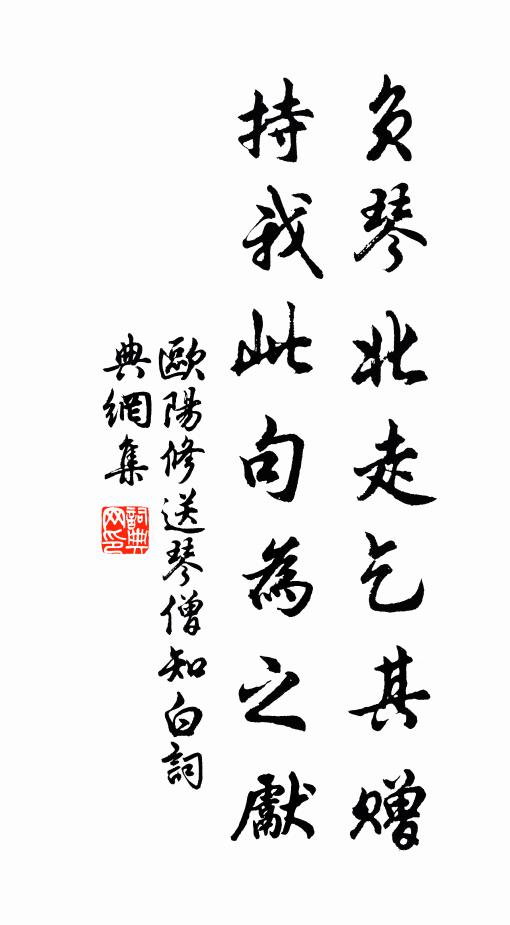 负琴北走乞其赠
持我此句為之獻
歐陽修送琴僧知白詞
典網集
詞典
网印